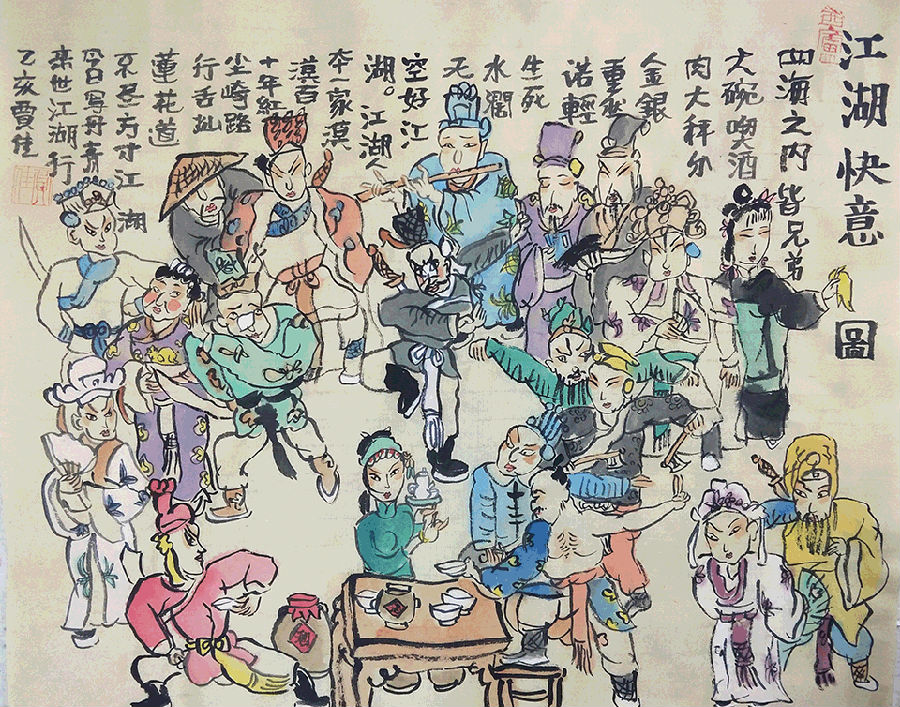 江湖快意圖
四海之内皆兄弟
大碗喫酒
肉大秤分
金銀
重然
諾輕
生死
水闊
无
空好江
湖。江湖人
本一家漠
漠百
十年红
尘崎路
行舌
蓮花道
不方寸江湖
今日写丹青
来世江湖行
乙亥賈佳
酒
酒